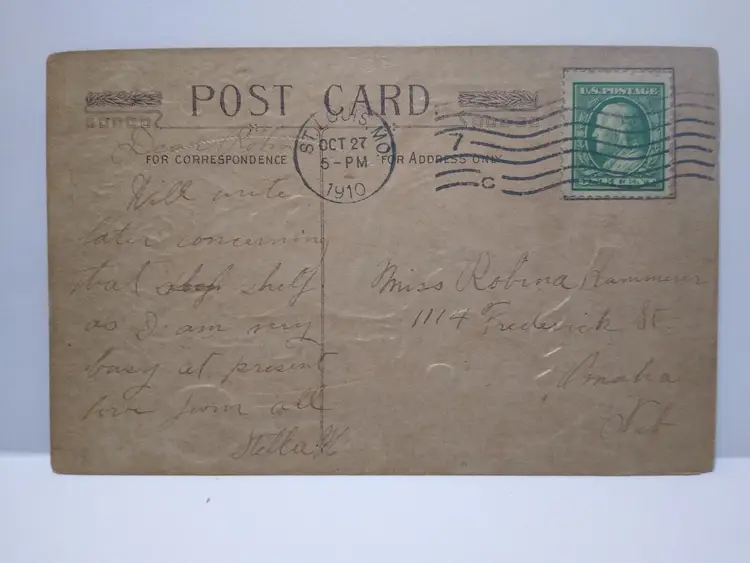 POST CARD
FOR CORRESPONDENCE
FOR ADDRESS ONLY
ST. LOUIS, MO.
OCT 27
5-PM
1910
7
C
U.S. POSTAGE
Will write
later concerning
that shelf
as I am very
busy at present
love from all
Stella K
Miss Robina
1114 Frederick St.
Omaha
Neb